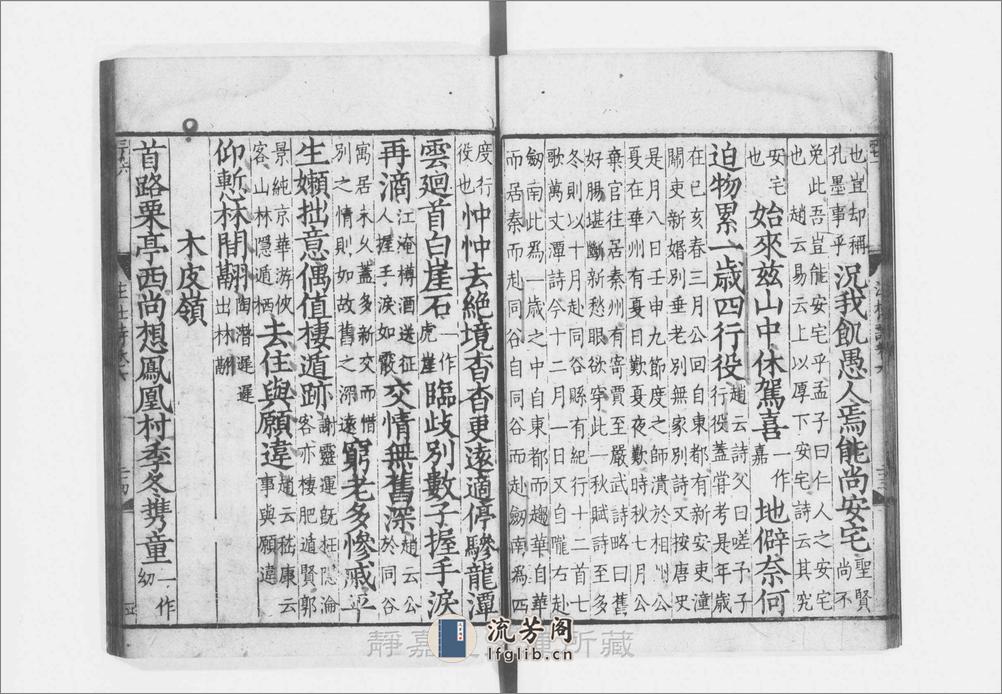 也豈却稱
孔墨事乎
況我飢愚人焉能尚安宅
聖賢
尚不
免此吾豈能安宅乎孟子曰仁人之安宅
也趙云易云上以厚下安宅詩云其究
安宅
也
始來兹山中休駕喜
一作
嘉
地僻奈何
迫物累一歲四行役
趙云詩父曰嗟予子
行役蓋甞考是年歲
在已亥春三月公回自東都有新安吏潼
關吏新婚别垂老别無家别詩又按唐史
是月八日壬申九節度之師潰於相州公
夏在華州有夏日歎夏夜歎時秋七月公
棄官往居秦州有寄賈至嚴武詩略曰舊
好腸堪斷新愁眼欲穿此一秋賦詩至多
冬則以十月赴同谷縣有紀行十二首七
歌萬丈潭詩今十二月一日又自隴右赴
劒南此為一歲之中自東都而趨華自華
而居秦而赴同谷自同谷而赴劒南為四
度行
役也
忡忡去絶境杳杳更遠適停驂龍潭
雲廻首白崖石
一作
虎崖
臨歧别數子握手淚
再滴
江淹樽酒送征
人握手淚如霰
交情無舊深
趙云公
於同谷
寓居未久蓋多新交而惜
别之情則如故舊之深遠
窮老多慘戚平
生嬾拙意偶值棲遁跡
謝靈運既枉隱淪
客亦棲肥遁賢郭
景純京華游俠
客山林隱遁栖
去住與願違
趙云嵇康云
事與願違
仰慙林間翮
陶潛遲遲
出林翮
木皮嶺
首路栗亭西尚想鳳凰村季冬携童
一作
幼
流芳阁
lfglib.cn